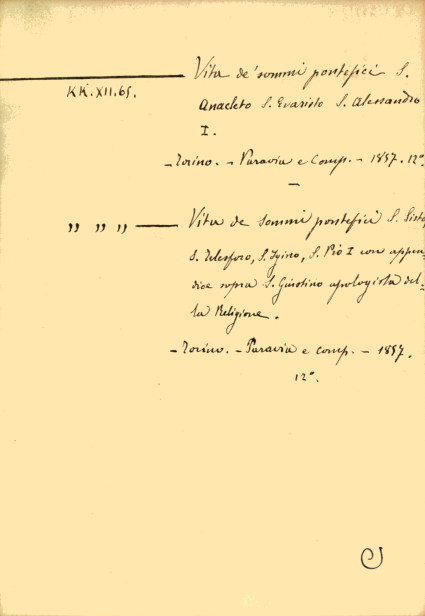 Vita de' sommi pontefici S.
KK.XII.65.
Anacleto S. Evaristo S. Alessandro
I.
- Torino. - Paravia e Comp. - 1857. 12º
" " " — Vita de sommi pontefici S. Sisto,
S. Telesforo, S. Igino, S. Pio I con appen=
dice sopra S. Giustino apologista del=
la Religione.
- Torino. - Paravia e comp. - 1857.
12º.